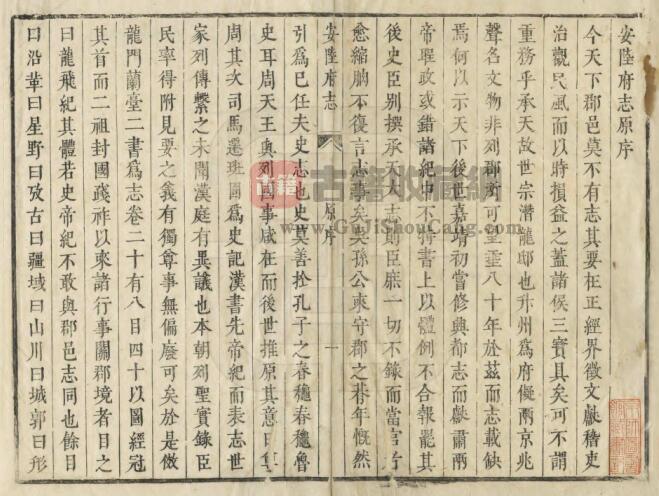 安陸府志原序
今天下郡邑莫不有志其要在正經界徵文獻稽吏
治觀民風而以時損益之蓋諸侯三寶具矣可不謂
重務乎承天故世宗潛龍邸也升州為府儗兩京兆
聲名文物非列郡所可望
八十年於茲而志載缺
焉何以示天下後世嘉靖初嘗修興都志而獻肅兩
帝聖政或錯諸紀中不
書上以體例不合報罷其
後史臣別撰承天大志則臣庶一切不錄而當官者
愈縮朒不復言志事矣吳孫公來守郡之朞年慨然
安陸府志
原序
一
引為已任夫史志也史莫善於孔子之春穐春穐魯
史耳周天王與列國事咸在而後世推原其意曰隻
周其次司馬遷班固為史記漢書先帝紀而表志世
家列傳繫之未聞漢庭有異議也本朝列聖實錄臣
民率得附見要之義有獨尊事無偏廢可矣於是倣
龍門蘭臺二書為志卷二十有八目四十以圖經冠
其首而二祖封國踐祚以來諸行事關郡境者目之
曰龍飛紀其體若史帝紀不敢與郡邑志同也餘目
曰沿革曰星野曰攷古曰疆域曰山川曰城郭曰形
古籍收藏網
www.GuJiShouCang.com